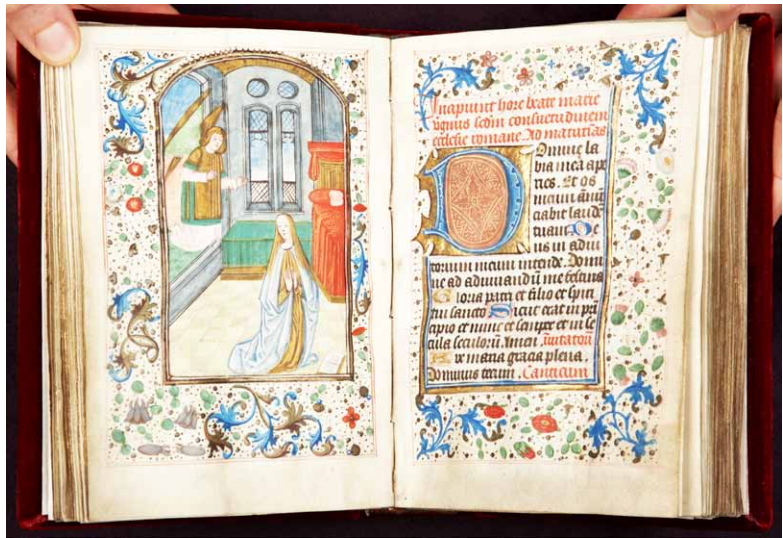 Incipiunt hore beate marie
virginis secdm consuetudinem
ecclesie romane. Ad matutinas
Domine la
bia mea ape
ries. Et os
meum annū
ciabit laudē
tuam. De
us in adiu
torium meum intende. Domi
ne ad adiuvandū me festina
Gloria patri et filio et spiri
tui sancto Sicut erat in pri
cipio et nunc et semper et in se
cula seculorū. Amen. Invitatoriū
Ave maria gracia plena.
Dominus tecum. Canticum